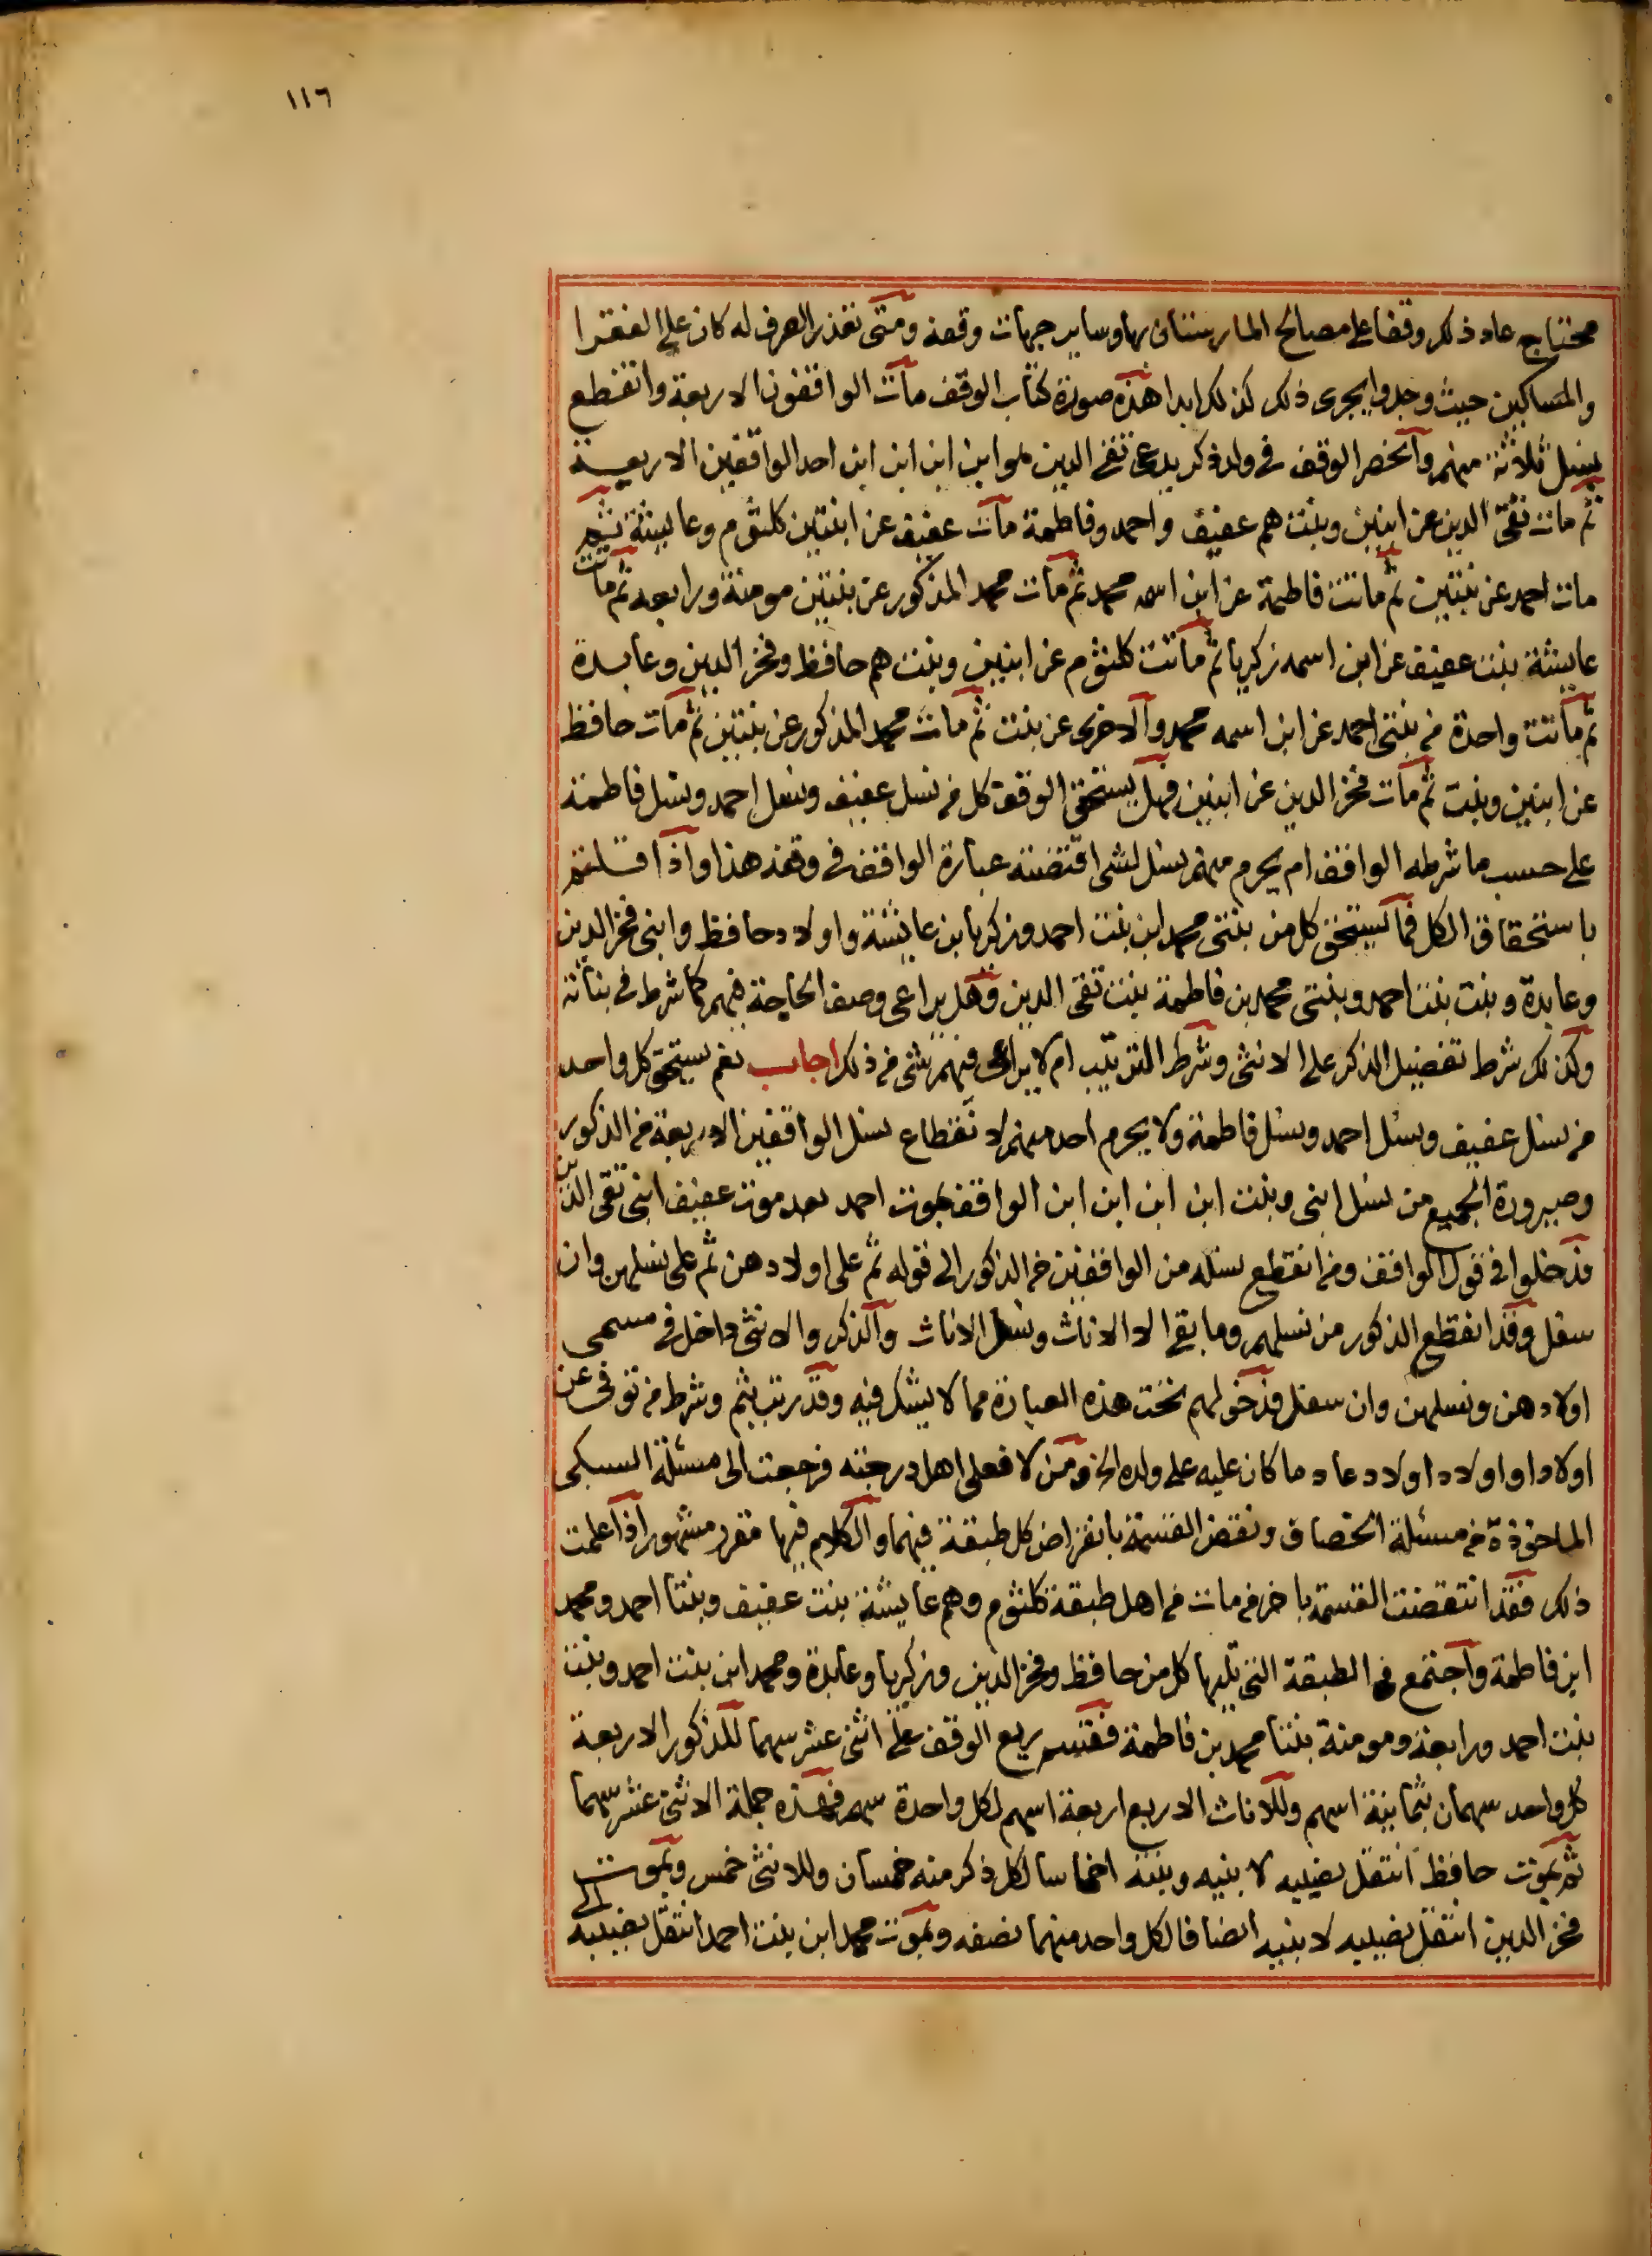 ١١٦
محتاج عاد ذلك وقفا على مصالح المارستان بها وساير جهات وقفه ومتى تعذر الصرف له كان على الفقرا
والمساكين حيث وجدوا يجرى ذلك كذلك ابدا هذه صورة كتاب الوقف مات الواقفون الاربعة وانقطع
نسل ثلاثة منهم وانحصر الوقف في ولد ذكر يدعى تقى الدين هو ابن ابن ابن ابن احد الواقفين الاربعة
ثم مات تقى الدين عن ابنين وبنت هم عفيف واحمد وفاطمة مات عفيف عن ابنتين كلثوم وعايشة ثم
مات احمد عن بنتين ثم ماتت فاطمة عن ابن اسمه محمد ثم مات محمد المذكور عن بنتين مومنة ورابعه ثم ماتت
عايشة بنت عفيف عن ابن اسمه زكريا ثم ماتت كلثوم عن ابنين وبنت هم حافظ وفخر الدين وعابدة
ثم ماتت واحدة من بنتى احمد عن ابن اسمه محمد والاخرى عن بنت ثم مات محمد المذكور عن بنتين ثم مات حافظ
عن ابنين وبنت ثم مات فخر الدين عن ابنين فهل يستحق الوقف كل من نسل عفيف ونسل احمد ونسل فاطمة
على حسب ما شرطه الواقف ام يحرم منهم نسل لشى اقتضته عبارة الواقف في وقفه هذا واذا قلتم
باستحقاق الكل فما يستحق كل من بنتى محمد ابن بنت احمد وزكريا بن عايشة واولاد حافظ وابنى فخر الدين
وعابدة وبنت بنت احمد وبنتى محمد بن فاطمة بنت تقى الدين وهل يراعى وصف الحاجة فيهم كما شرط في بناته
وكذلك شرط تفضيل الذكر على الانثى وشرط الترتيب ام لا يراعى فيهم شى من ذلك اجاب نعم يستحق كل واحد
من نسل عفيف ونسل احمد ونسل فاطمة ولا يحرم احد منهم لانقطاع نسل الواقفين الاربعة من الذكور
وصيرورة الجميع من نسل ابنى وبنت ابن ابن ابن ابن الواقف بموت احمد بعد موت عفيف ابنى تقى الدين
فدخلوا في قول الواقف ومن انقطع نسله من الواقفين من الذكور الى قوله ثم على اولادهن ثم على نسلهن وان
سفل وقد انقطع الذكور من نسلهم وما بقى الا الاناث ونسل الاناث والذكر والانثى داخل في مسمى
اولادهن ونسلهن وان سفل فدخولهم تحت هذه العبارة مما لا يشك فيه وقد رتب بثم وشرط من توفى عن
اولاد او اولاد اولاد عاد ما كان عليه على ولده الخ ومن لا فعلى اهل درجته فرجعت الى مسئلة السبكى
الماخوذة من مسئلة الخصاف ونقض القسمة بانقراض كل طبقة فيهما والكلام فيها مقرر مشهور اذا علمت
ذلك فقد انتقضت القسمة باخر من مات من اهل طبقة كلثوم وهم عايشة بنت عفيف وبنتا احمد ومحمد
ابن فاطمة واجتمع في الطبقة التى تليها كل من حافظ وفخر الدين وزكريا وعابدة ومحمد ابن بنت احمد وبنت
بنت احمد ورابعة ومومنة بنتا محمد بن فاطمة فقسم ريع الوقف على اثنى عشر سهما للذكور الاربعة
كل واحد سهمان بثمانية اسهم وللاناث الاربع اربعة اسهم لكل واحدة سهم فهذه جملة الاثنى عشر سهما
ثم بموت حافظ انتقل نصيبه لابنيه وبنته اخماسا لكل ذكر منه خمسان وللانثى خمس وبموت
فخر الدين انتقل نصيبه لابنيه انصافا لكل واحد منهما نصفه وبموت محمد ابن بنت احمد انتقل نصيبه الى